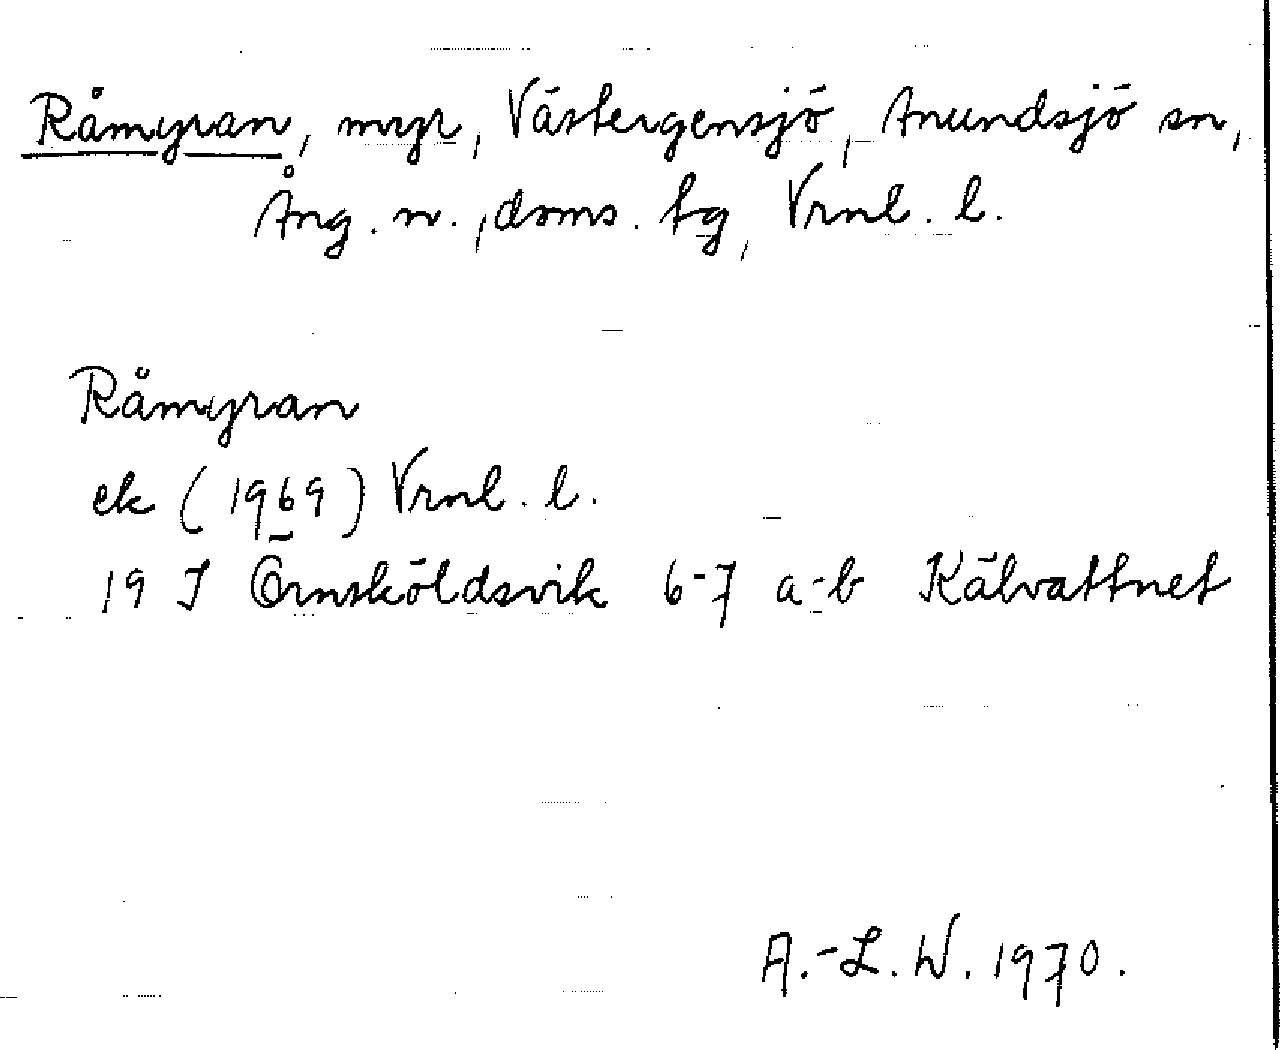 Råmyran, myr, Västergensjö, Anundsjö sn,
Ång. n., doms. tg, Vrnl. l.
Råmyran
ek (1969) Vrnl. l.
19 J Örnsköldsvik 6-7 a-b Kälvattnet
A.-L. W. 1970.